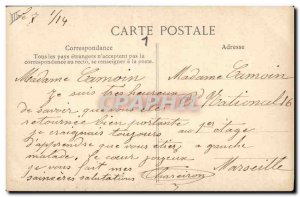 8 1/14
CARTE POSTALE
1
Correspondance
Adresse
Tous les pays étrangers n'acceptent pas la
correspondance au recto, se renseigner à la poste.
Madame Camoin
Je suis très heureux
de savoir que vous
retournée bien portante
je craignais toujours
d'apprendre que vous étiez
malade. Je cœur joyeux
je vous fait mes
sincères salutations
Madame Camoin
National 16
au 1 étage
a gauche
Marseille
CPAREPHIL.com